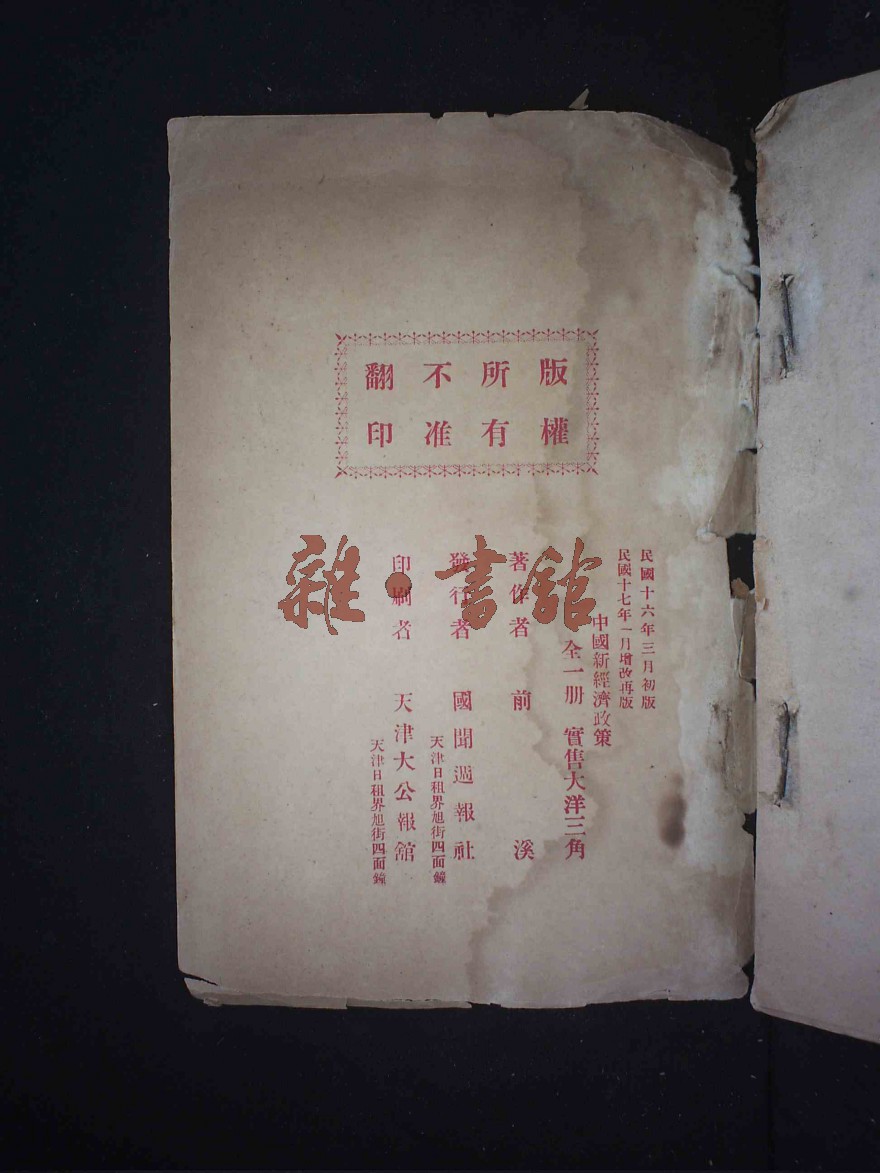 版權
所有
不准
翻印
民國十六年三月初版
民國十七年一月增改再版
中國新經濟政策
全一册 實售大洋三角
著作者 前溪
發行者 國聞週報社
天津日租界旭街四面鐘
印刷者 天津大公報館
天津日租界旭街四面鐘
雜·書館